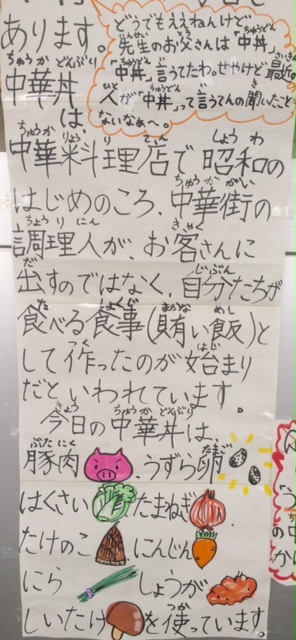 あります。
どうでもええねんけど
先生のお父さんは「中丼
「中丼」言うてたわ。せやけど、最近
人が「中丼」って言うてんの聞いたこと
ないなあ〜。
中華丼は、
中華料理店で昭和の
はじめのころ、中華街の
調理人が、お客さんに
出すのではなく、自分たちが
食べる食事(賄い飯)と
して作ったのが始まり
だといわれています。
今日の中華丼は、
豚肉、うずら卵
はくさい たまねぎ、
たけのこ にんじん
にら しょうが
しいたけ を使っています。